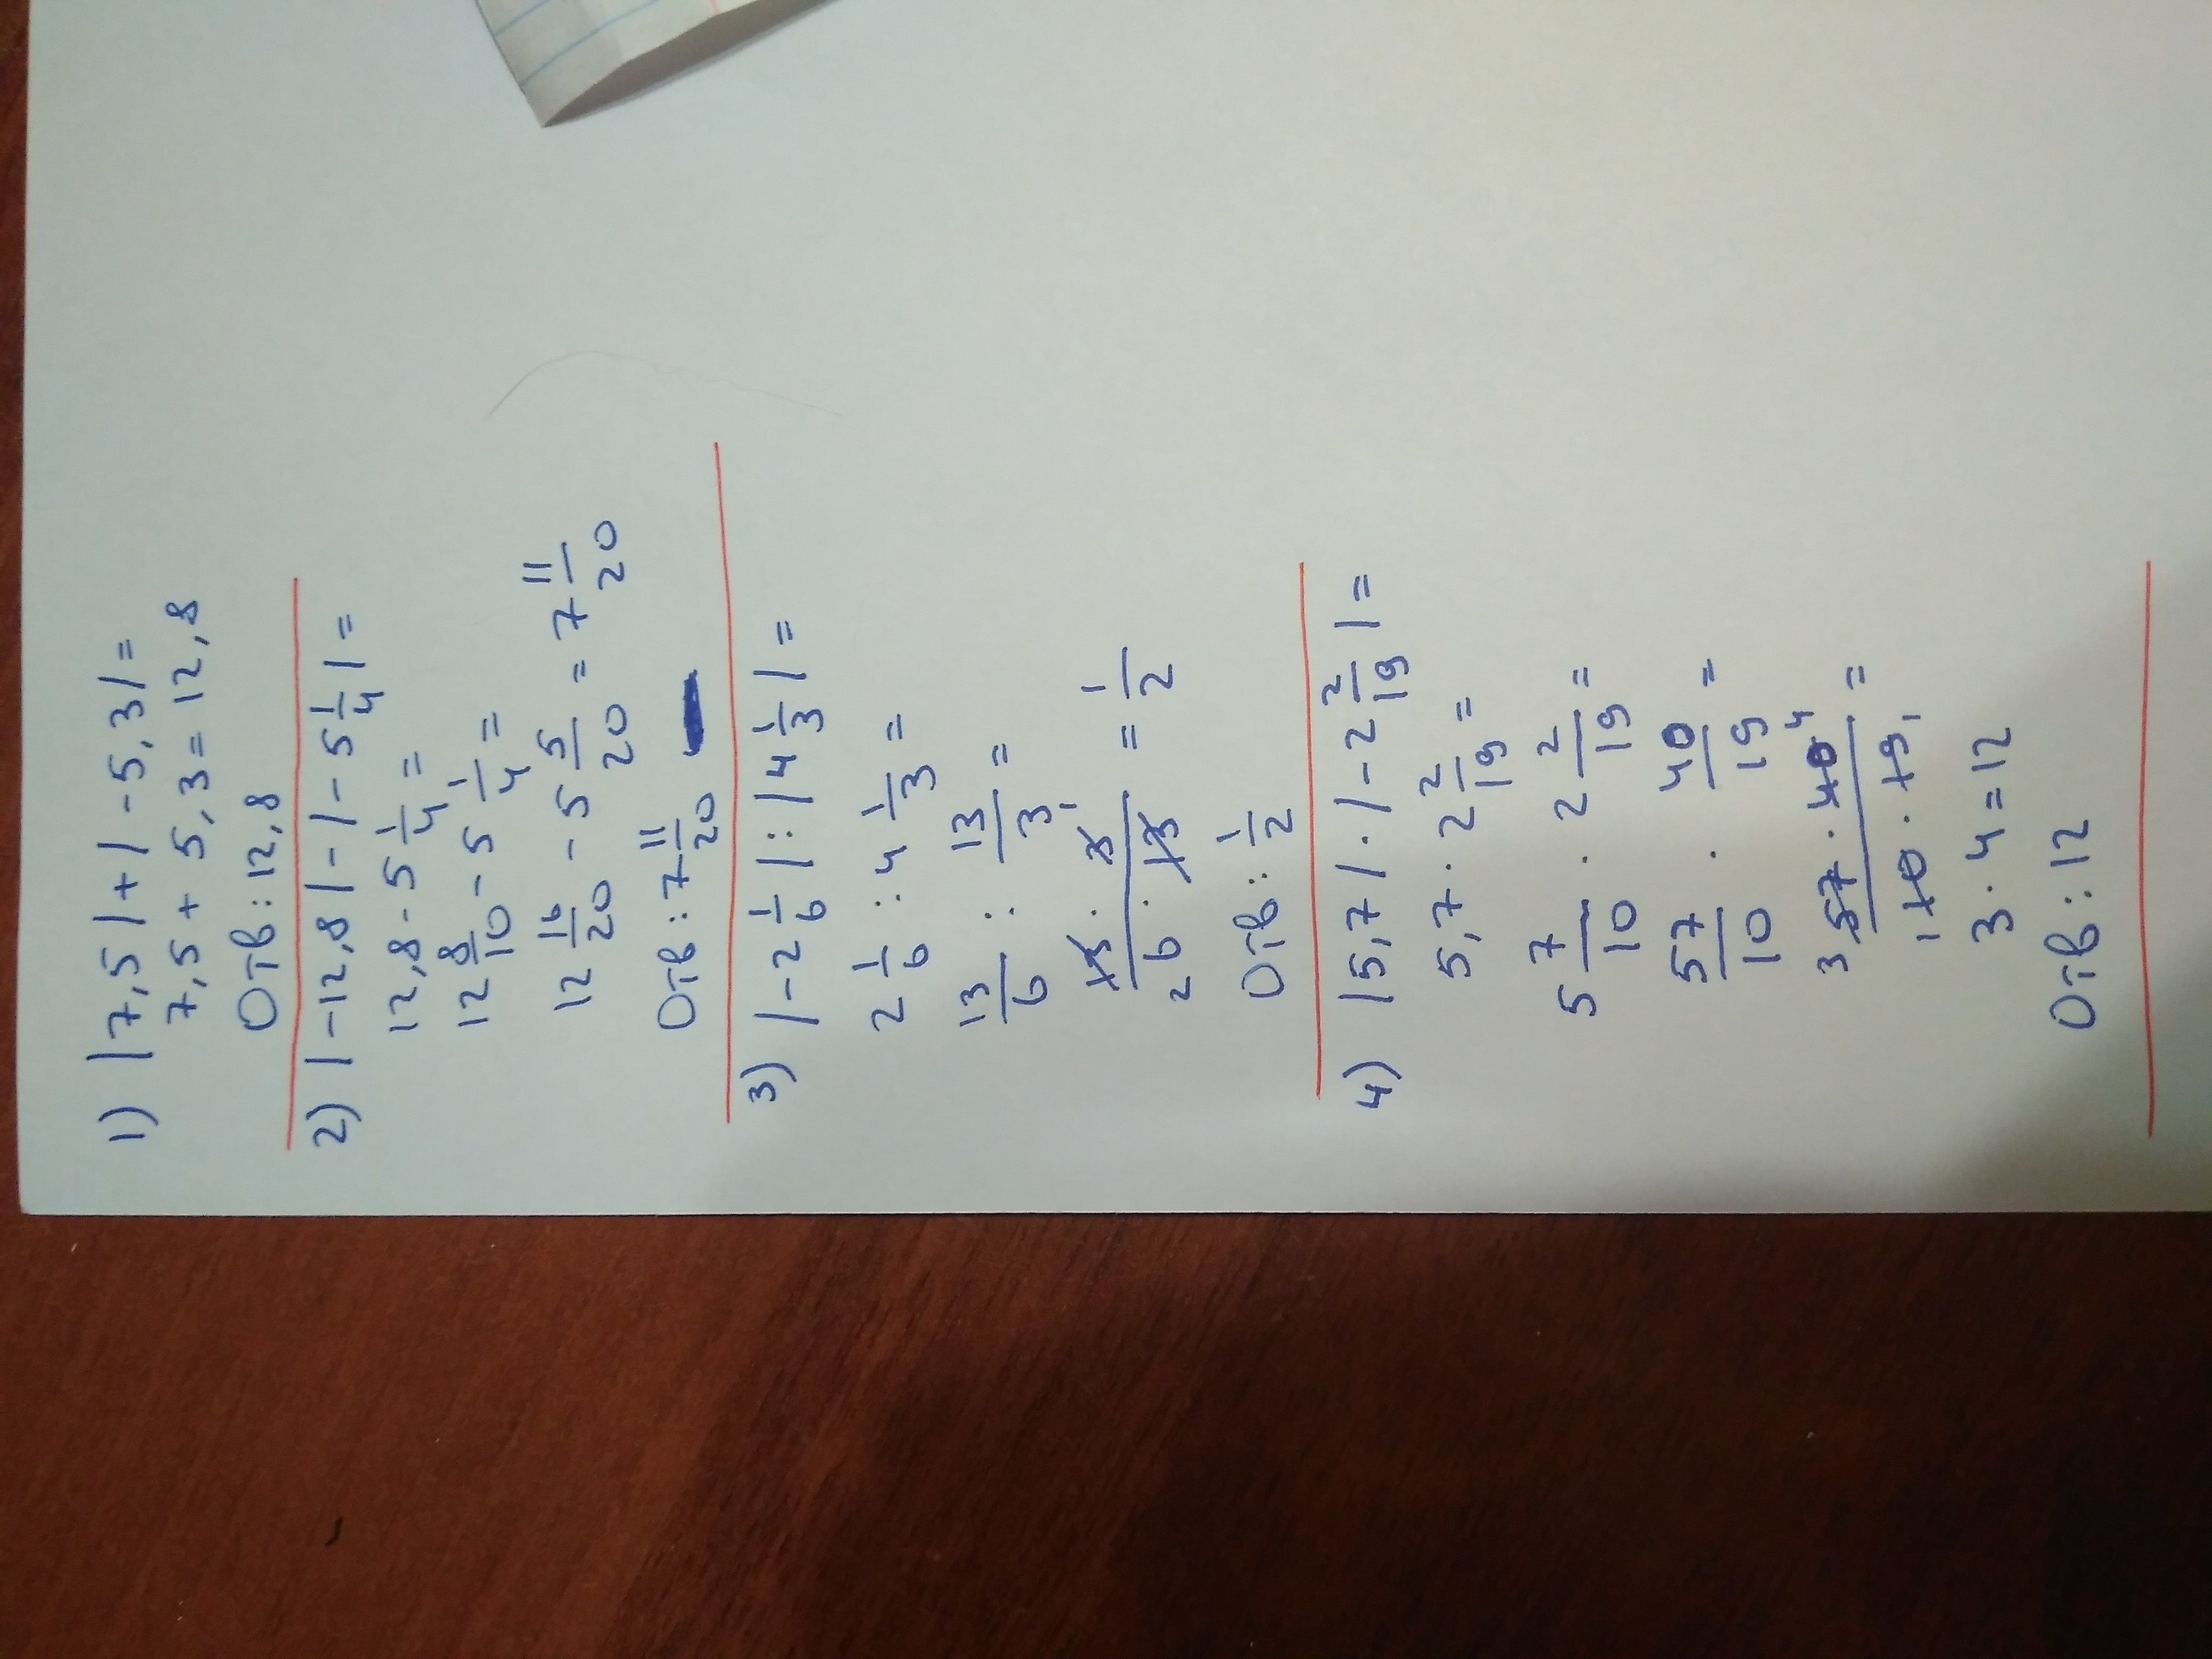 1) |7,5|+|-5,3|=
7,5+5,3=12,8
Отв:12,8
2) |-12,8|-|-5 1/4|=
12,8-5 1/4=
12 8/10-5 1/4=
12 16/20-5 5/20=7 11/20
Отв:7 11/20
3) |-2 1/6|:|4 1/3|=
2 1/6:4 1/3=
13/6:13/3=
13·3 1/2 6·13=1/2
Отв:1/2
4) |5,7|·|-2 2/19|=
5,7·2 2/19=
5 7/10·2 2/19=
57/10·40/19=
3 57·40 4/1 10·19 1=
3·4=12
Отв:12